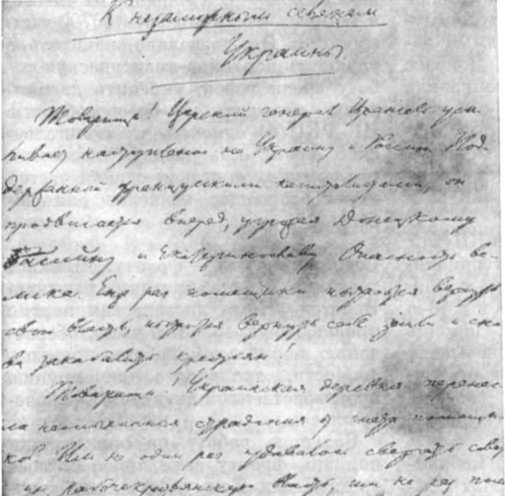 К незаможным селянам
Украины
Товарищи! Царский генерал Врангель уси-
ливает наступление на Украину и Россию. Под-
держанный французскими капиталистами, он
продвигается вперед, угрожая Донецкому
бассейну и Екатеринославу. Опасность ве-
лика. Еще раз помещики пытаются вернуть
свою власть, пытаются вернуть себе земли и сно-
ва закабалить крестьян!
Товарищи! Украинская деревня перенес-
ла неслыханные страдания от гнета помещи-
ков. Им не один раз удавалось свергать
рабоче-крестьянскую власть, им не раз